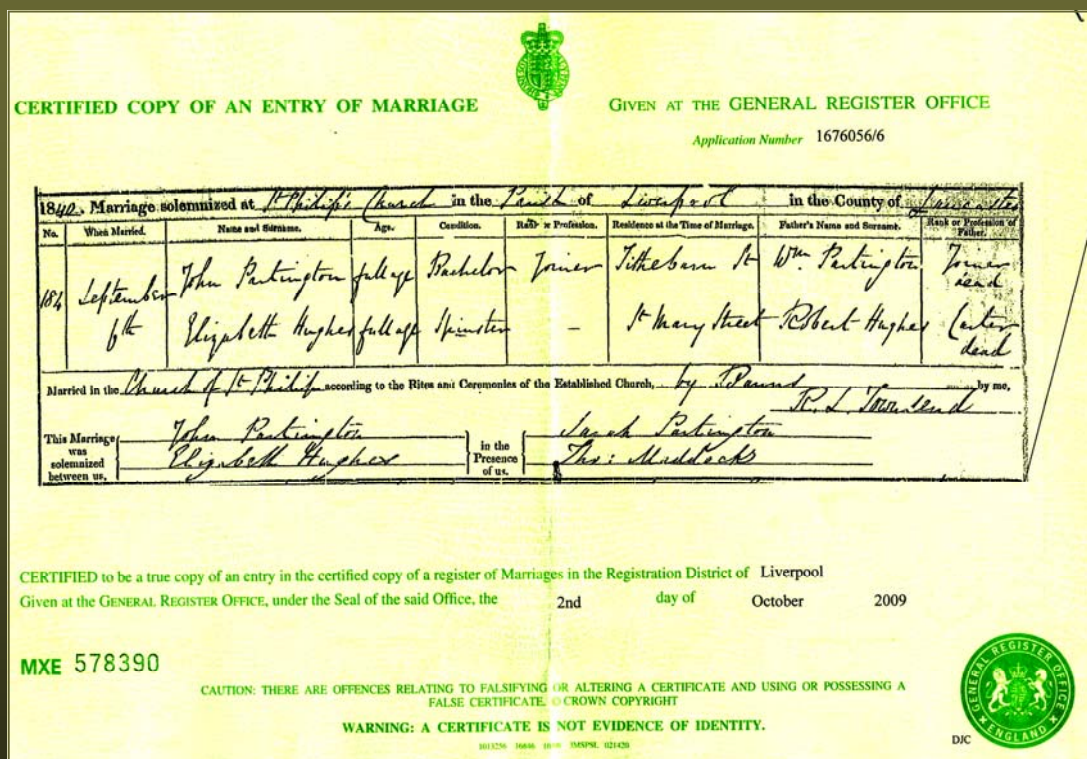 CERTIFIED COPY OF AN ENTRY OF MARRIAGE
GIVEN AT THE GENERAL REGISTER OFFICE
Application Number 1676056/6
1840. Marriage solemnized at St Philip's Church in the Parish of Liverpool in the County of Lancaster
No. When Married. Name and Surname. Age. Condition. Rank or Profession. Residence at the Time of Marriage. Father's Name and Surname. Rank or Profession of Father.
184 September 6th
John Partington full age Bachelor Joiner Tithebarn St Wm Partington Joiner dead
Elizabeth Hughes full age Spinster – St Mary Street Robert Hughes Carter dead
Married in the Church of St Philip according to the Rites and Ceremonies of the Established Church, by Banns by me,
R. L. Townsend
This Marriage was solemnized between us,
John Partington
Elizabeth Hughes
in the Presence of us,
Sarah Partington
Tho: Maddocks
CERTIFIED to be a true copy of an entry in the certified copy of a register of Marriages in the Registration District of Liverpool
Given at the GENERAL REGISTER OFFICE, under the Seal of the said Office, the 2nd day of October 2009
MXE 578390
CAUTION: THERE ARE OFFENCES RELATING TO FALSIFYING OR ALTERING A CERTIFICATE AND USING OR POSSESSING A
FALSE CERTIFICATE. © CROWN COPYRIGHT
WARNING: A CERTIFICATE IS NOT EVIDENCE OF IDENTITY.
GENERAL REGISTER OFFICE
ENGLAND
DJC